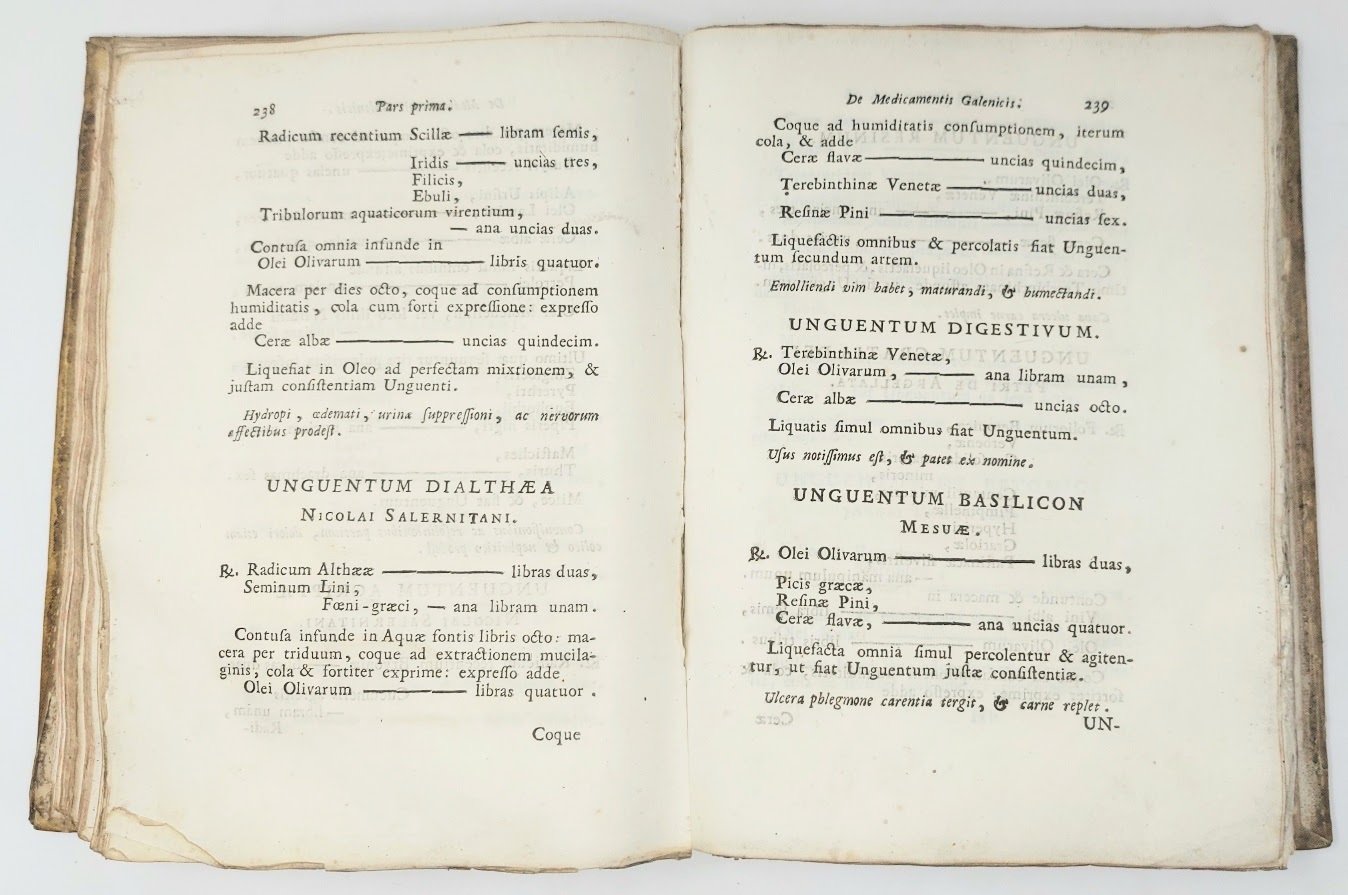 238 Pars prima.
Radicum recentium Scillæ —— libram ſemis,
Iridis —— uncias tres,
Filicis,
Ebuli,
Tribulorum aquaticorum virentium,
— ana uncias duas.
Contuſa omnia infunde in
Olei Olivarum —— libris quatuor.
Macera per dies octo, coque ad conſumptionem
humiditatis, cola cum forti expreſſione: expreſſo
adde
Ceræ albæ —— uncias quindecim.
Liquefiat in Oleo ad perfectam mixtionem, &
juſtam conſiſtentiam Unguenti.
Hydropi, œdemati, urinæ ſuppreſſioni, ac nervorum
affectibus prodeſt.
UNGUENTUM DIALTHÆA
NICOLAI SALERNITANI.
℞. Radicum Althææ —— libras duas,
Seminum Lini,
Fœni-græci, — ana libram unam.
Contuſa infunde in Aquæ fontis libris octo: ma-
cera per triduum, coque ad extractionem mucila-
ginis, cola & fortiter exprime: expreſſo adde
Olei Olivarum —— libras quatuor.
Coque
De Medicamentis Galenicis. 239
Coque ad humiditatis conſumptionem, iterum
cola, & adde
Ceræ flavæ —— uncias quindecim,
Terebinthinæ Venetæ —— uncias duas,
Reſinæ Pini —— uncias ſex.
Liquefactis omnibus & percolatis fiat Unguen-
tum ſecundum artem.
Emolliendi vim habet, maturandi, & humectandi.
UNGUENTUM DIGESTIVUM.
℞. Terebinthinæ Venetæ,
Olei Olivarum, —— ana libram unam,
Ceræ albæ —— uncias octo.
Liquatis ſimul omnibus fiat Unguentum.
Uſus notiſſimus eſt, & patet ex nomine.
UNGUENTUM BASILICON
MESUÆ.
℞. Olei Olivarum —— libras duas,
Picis græcæ,
Reſinæ Pini,
Ceræ flavæ, —— ana uncias quatuor.
Liquefacta omnia ſimul percolentur & agiten-
tur, ut fiat Unguentum juſtæ conſiſtentiæ.
Ulcera phlegmone carentia tergit, & carne replet.
UN-